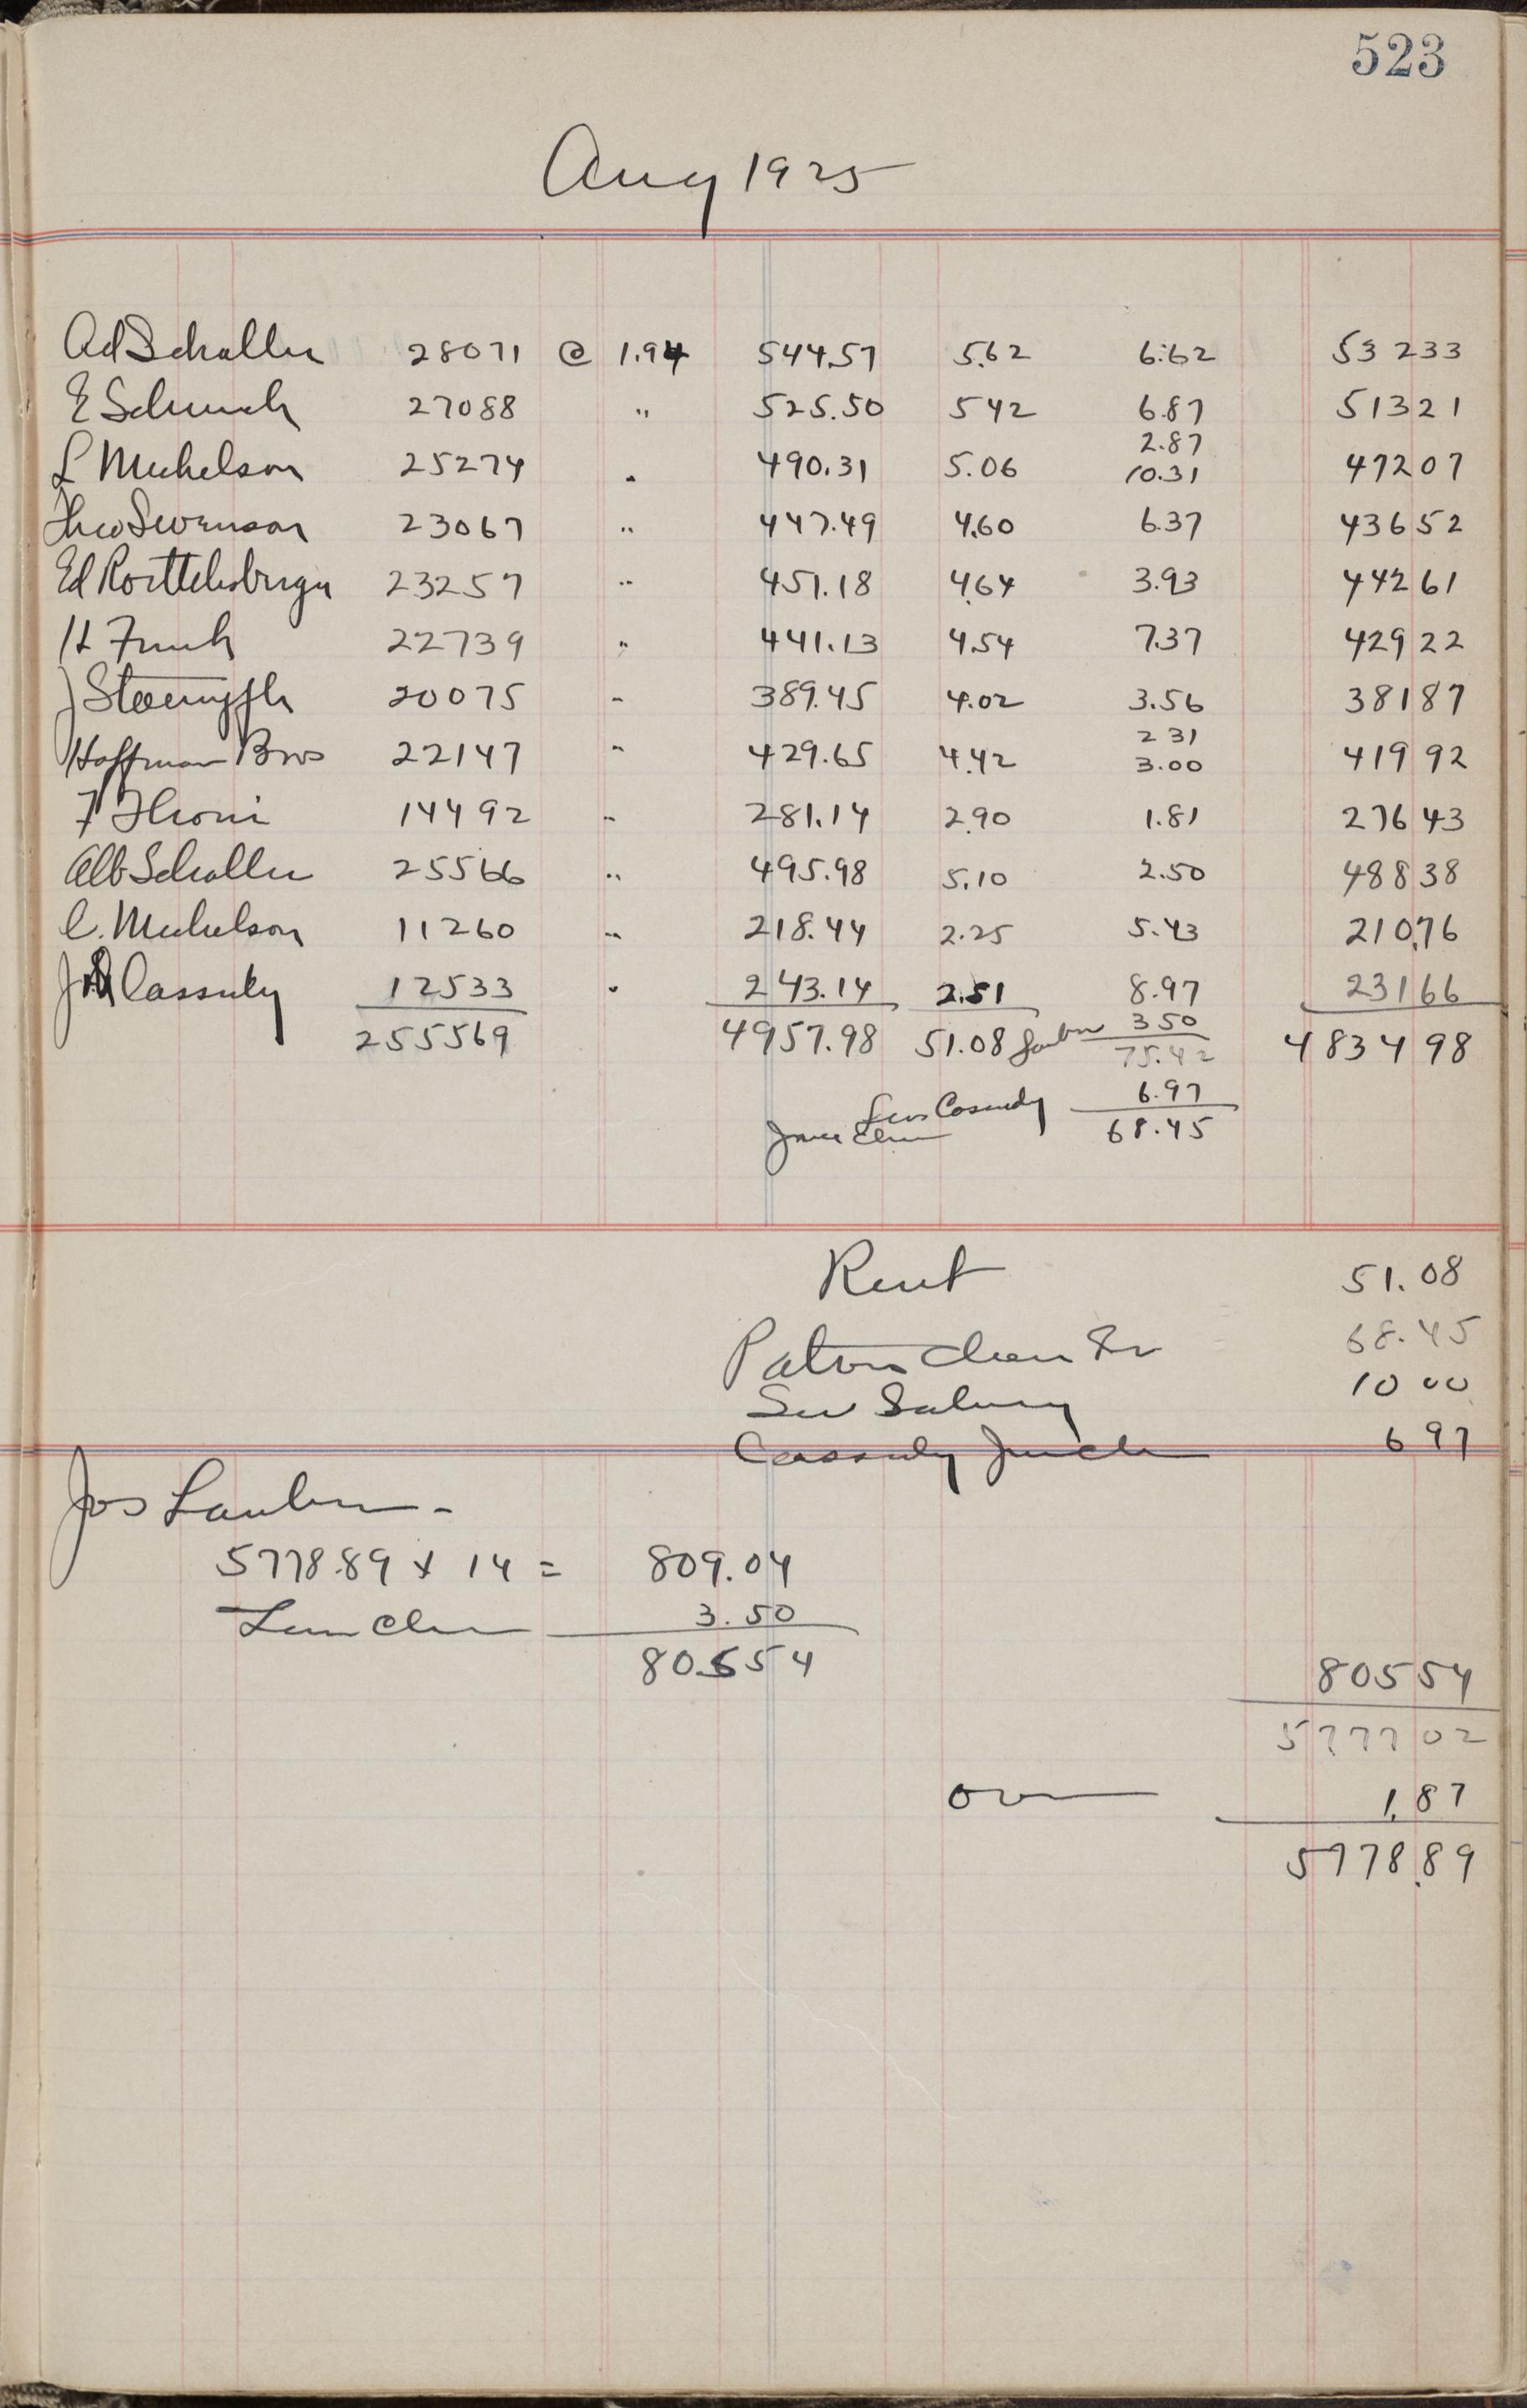 523
Aug 1925
Ad Schaller 28071 @ 1.94 544.57 5.62 6.62 532 33
E Schunck 27088 " 525.50 5 42 6.87 513 21
2.87
L Michelson 25274 " 490.31 5.06 10.31 472 07
Theo Swenson 23067 " 447.49 4.60 6.37 436 52
Ed Roettelsberger 23257 " 451.18 4.64 3.93 442 61
H Funk 22739 " 441.13 4.54 7.37 429 22
J Staempfli 20075 " 389.45 4.02 3.56 381 87
2 31
Hoffman Bros 22147 " 429.65 4.42 3.00 419 92
F Thoni 14492 " 281.14 2.90 1.81 276 43
Alb Schaller 25566 " 495.98 5.10 2.50 488 38
C. Michelson 11260 " 218.44 2.25 5.43 210.76
Cassidy 12533 " 243.14 2.51 8.97 231 66
3 50
255569 4957.98 51.08 Lauber 75.42 4834 98
Less Cassidy 6.97
68.45
Rent 51.08
Patrons 68.45
Sec Salary 10 00
Cassidy 6 97
Jos Lauber -
5778.89 x 14 = 809.04
3.50
805 54
805 54
5777 02
Over 1.87
5778.89